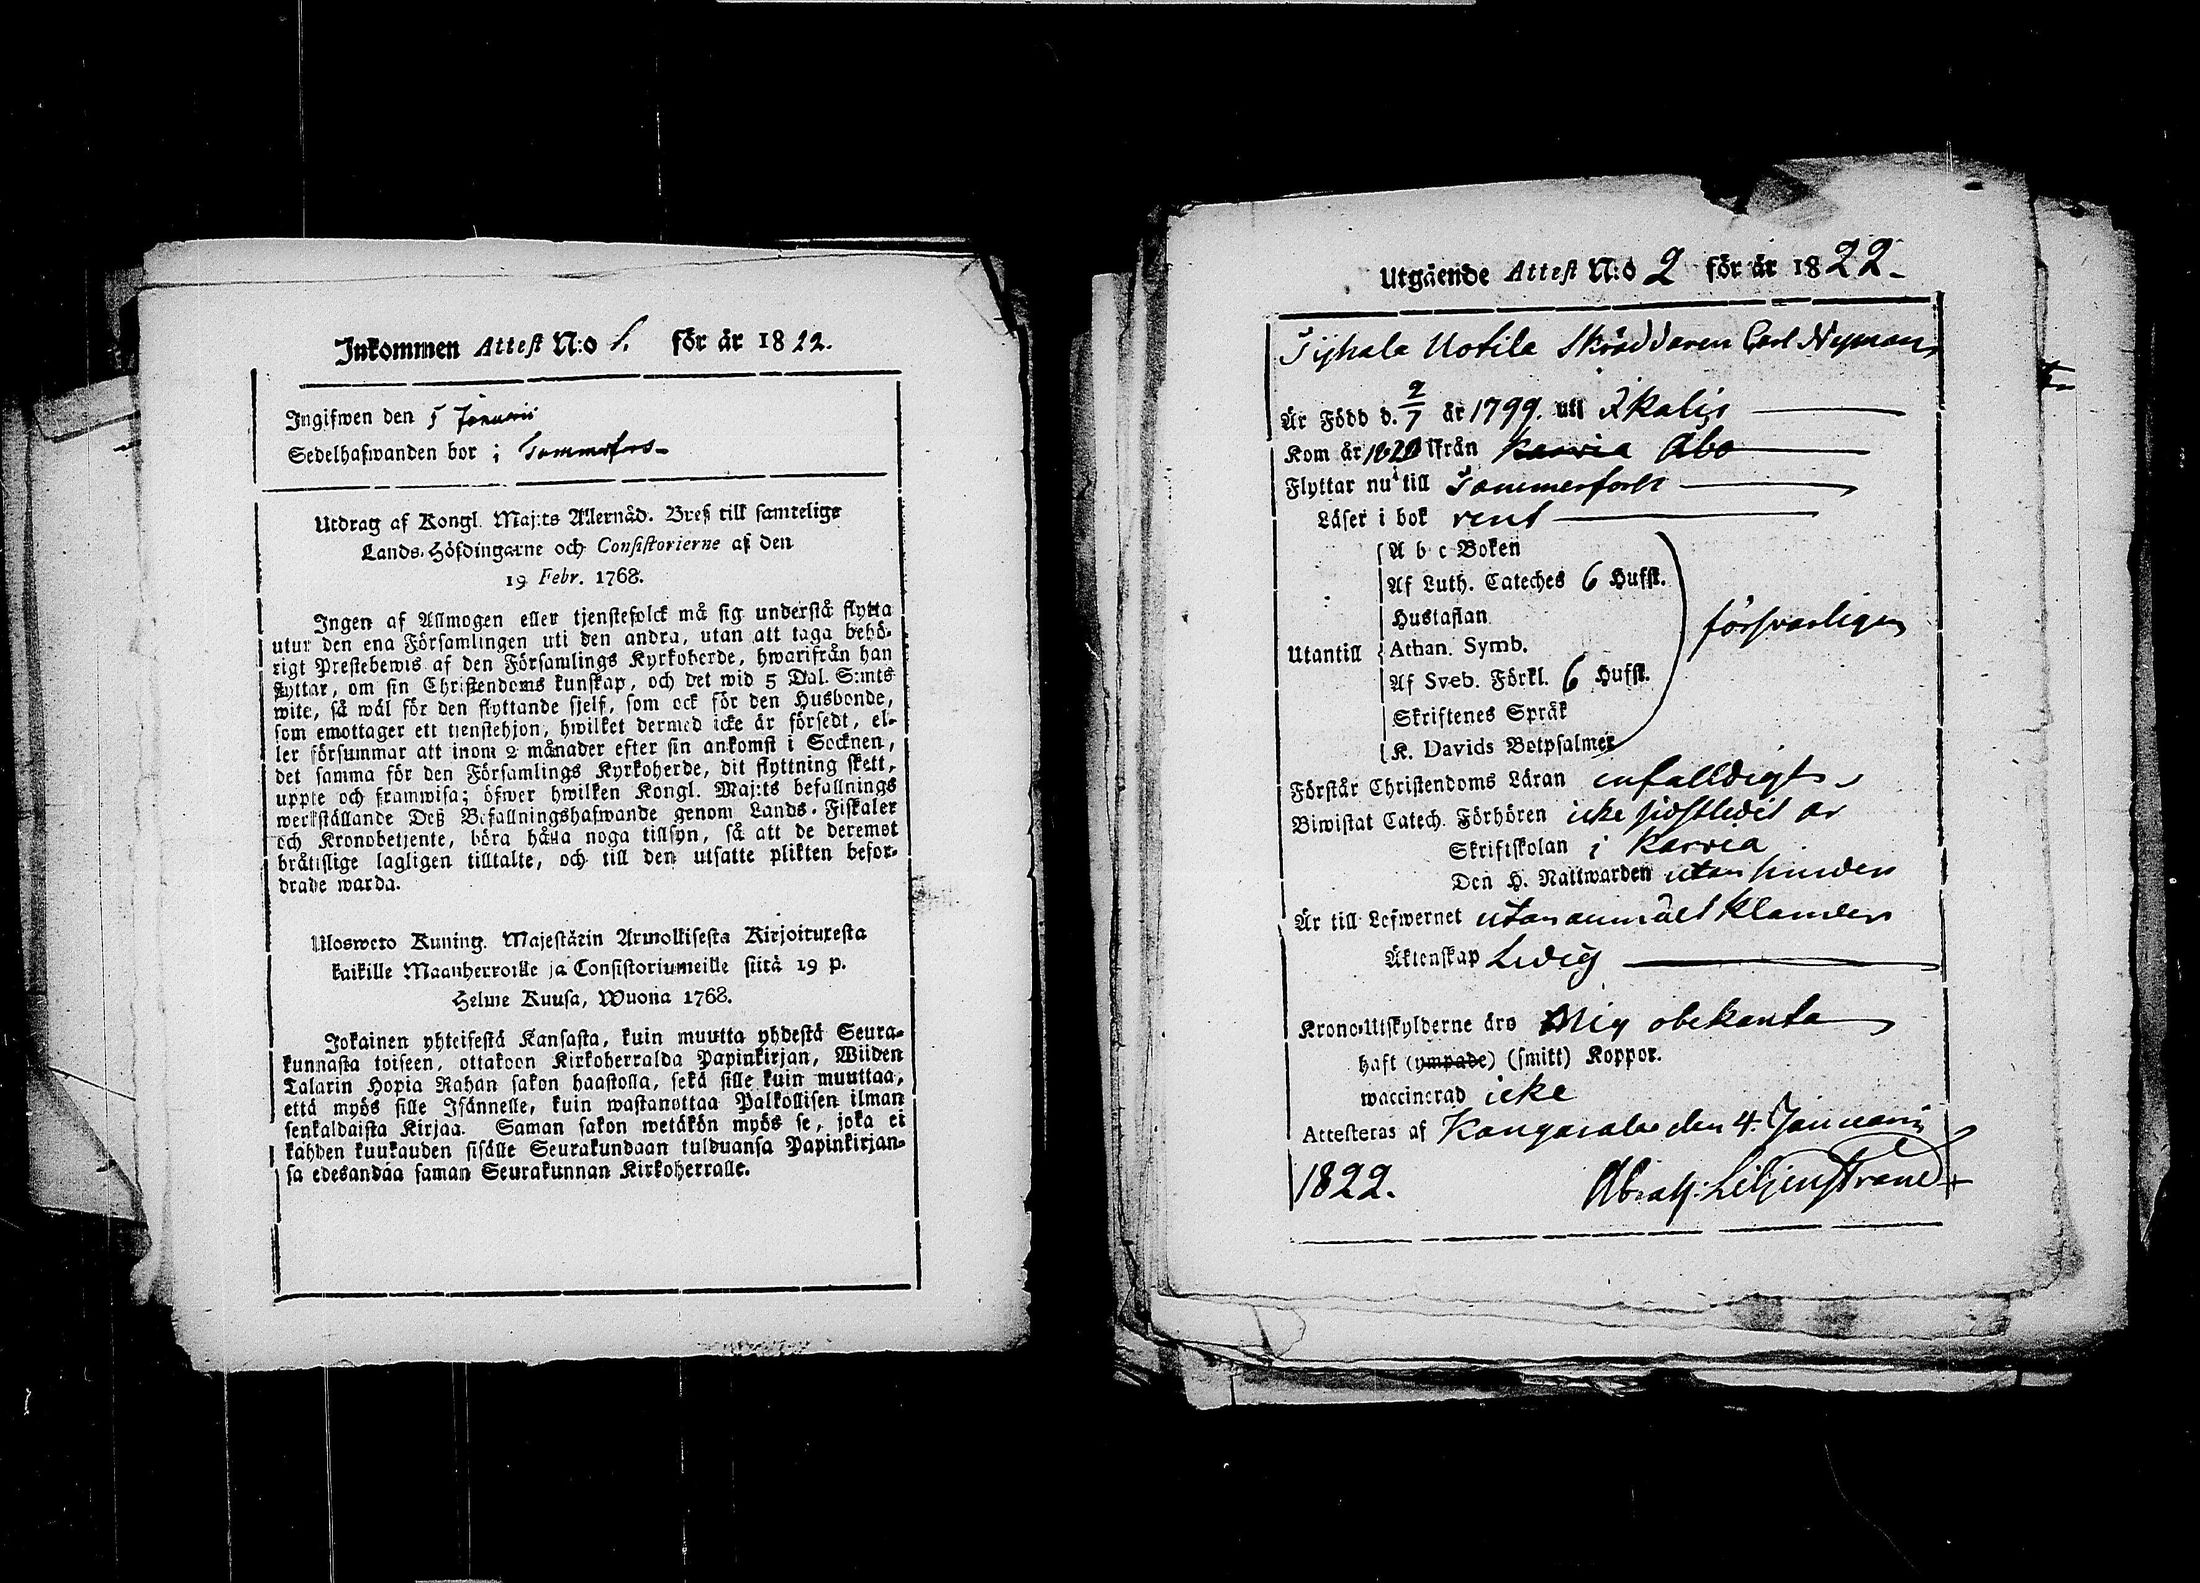 Inkommen Attest N:o 1. för år 1822.
Ingifwen den 5 Januarii
Sedelhafwanden bor i Tammerfors
Utdrag af Kongl. Maj:ts Allernåd. Bref till samtelige
Lands-Höfdingarne och Consistorierne af den
19 Febr. 1768.
Ingen af Allmogen eller tjenstefolck må sig understå flytta
utur den ena Församlingen uti den andra, utan att taga behö-
rigt Prestebewis af den Församlings Kyrkoherde, hwarifrån han
flyttar, om sin Christendoms kunskap, och det wid 5 Dal. S:mts
wite, så wäl för den flyttande sjelf, som ock för den Husbonde,
som emottager ett tjenstehjon, hwilket dermed icke är försedt, el-
ler försummar att inom 2 månader efter sin ankomst i Socknen,
det samma för den Församlings Kyrkoherde, dit flyttning skett,
uppte och framwisa; öfwer hwilken Kongl. Maj:ts befallnings
werkställande Deß Befallningshafwande genom Lands-Fiskaler
och Kronobetjente, böra hålla noga tillsyn, så att de deremot
bråtislige lagligen tilltalte, och till den utsatte plikten befor-
drade warda.
Ulosweto Kuning. Majestätin Armollisesta Kirjoituxesta
kaikille Maanherroille ja Consistoriumeille siitä 19 p.
Helme Kuusa, Wuonna 1768.
Jokainen yhteisestä Kansasta, kuin muutta yhdestä Seura-
kunnasta toiseen, ottakoon Kirkoherralda Papinkirjan, Wiiden
Talarin Hopia Rahan sakon haastolla, sekä sille kuin muuttaa,
että myös sille Isännelle, kuin wastanottaa Palkollisen ilman
senkaldaista Kirjaa. Saman sakon wetäkön myös se, joka ei
kahden kuukauden sisälle Seurakundaan tulduansa Papinkirjan-
sa edesandaa saman Seurakunnan Kirkoherralle.
Utgående Attest N:o 2 för år 1822.
Tiihala Uotila Skräddaren Carl Nyman
Är Född d. 2/7 år 1799. uti Ikalis
Kom år 1820 ifrån Karvia Åbo
Flyttar nu till Tammerfors
Läser i bok rent
A b c Boken
Af Luth. Cateches 6 Hufst.
Hustaflan
Utantill Athan. Symb. försvarligen
Af Sveb. Förkl. 6 Hufst.
Skriftenes Språk
K. Davids Botpsalmer
Förstår Christendoms Läran enfalldigt
Biwistat Catech. Förhören icke sidstledit år
Skriftskolan i Karvia
Den H. Nattwarden utan hinder
Är till Lefwernet utan anmält klander
Äktenskap Ledig
Krono-Utskylderne äro Mig obekanta
haft (ympade) (smitt) Koppor.
waccinerad icke
Attesteras af Kangasala den 4. Januarii
1822. Abrah: Liljenstrand